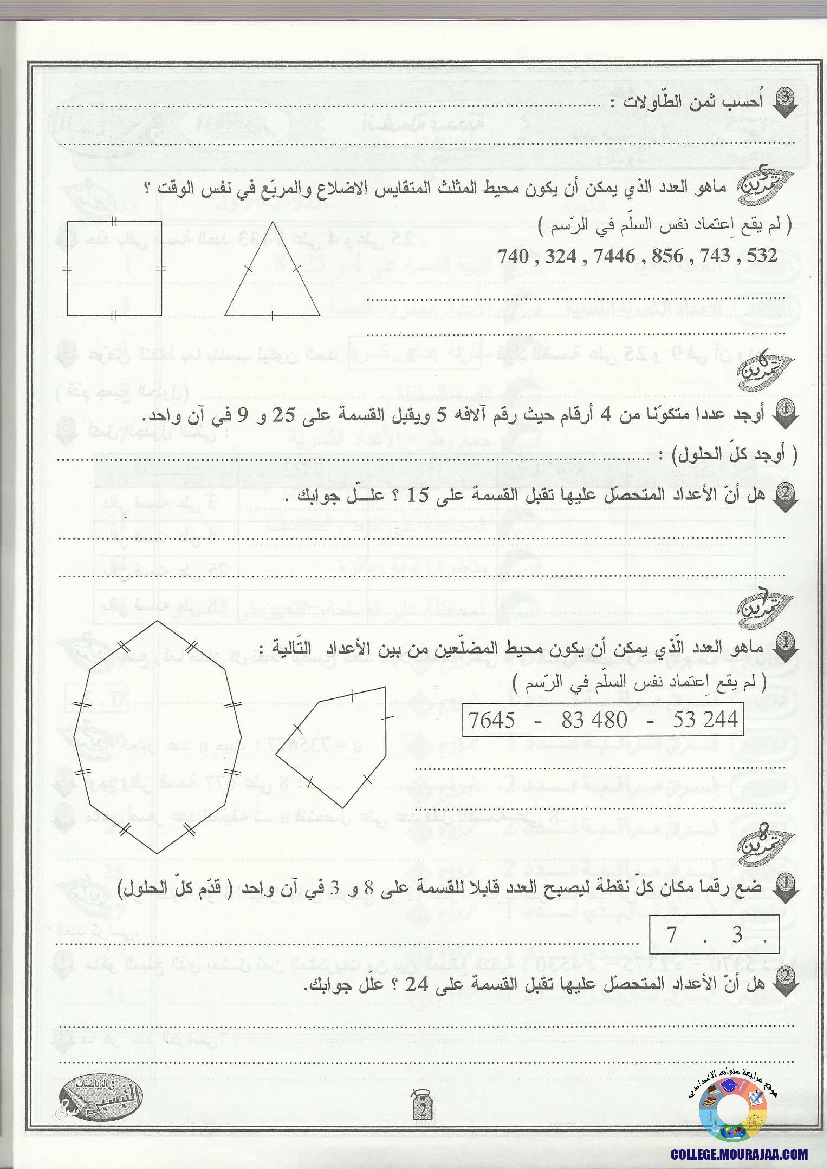 3 أحسب ثمن الطّاولات :
تمرين 5
ماهو العدد الذي يمكن أن يكون محيط المثلث المتقايس الاضلاع والمربّع في نفس الوقت ؟
( لم يقع إعتماد نفس السلّم في الرّسم )
740 , 324 , 7446 , 856 , 743 , 532
تمرين 6
1 أوجد عددا متكوّنا من 4 أرقام حيث رقم آلافه 5 ويقبل القسمة على 25 و 9 في آن واحد.
( أوجد كلّ الحلول) :
2 هل أنّ الأعداد المتحصّل عليها تقبل القسمة على 15 ؟ علّل جوابك .
تمرين 7
1 ماهو العدد الّذي يمكن أن يكون محيط المضلّعين من بين الأعداد التّالية :
( لم يقع إعتماد نفس السلّم في الرّسم )
7645 - 83 480 - 53 244
تمرين 8
1 ضع رقما مكان كلّ نقطة ليصبح العدد قابلا للقسمة على 8 و 3 في آن واحد ( قدّم كلّ الحلول)
7 . 3 .
2 هل أنّ الأعداد المتحصّل عليها تقبل القسمة على 24 ؟ علّل جوابك.
2
COLLEGE.MOURAJAA.COM